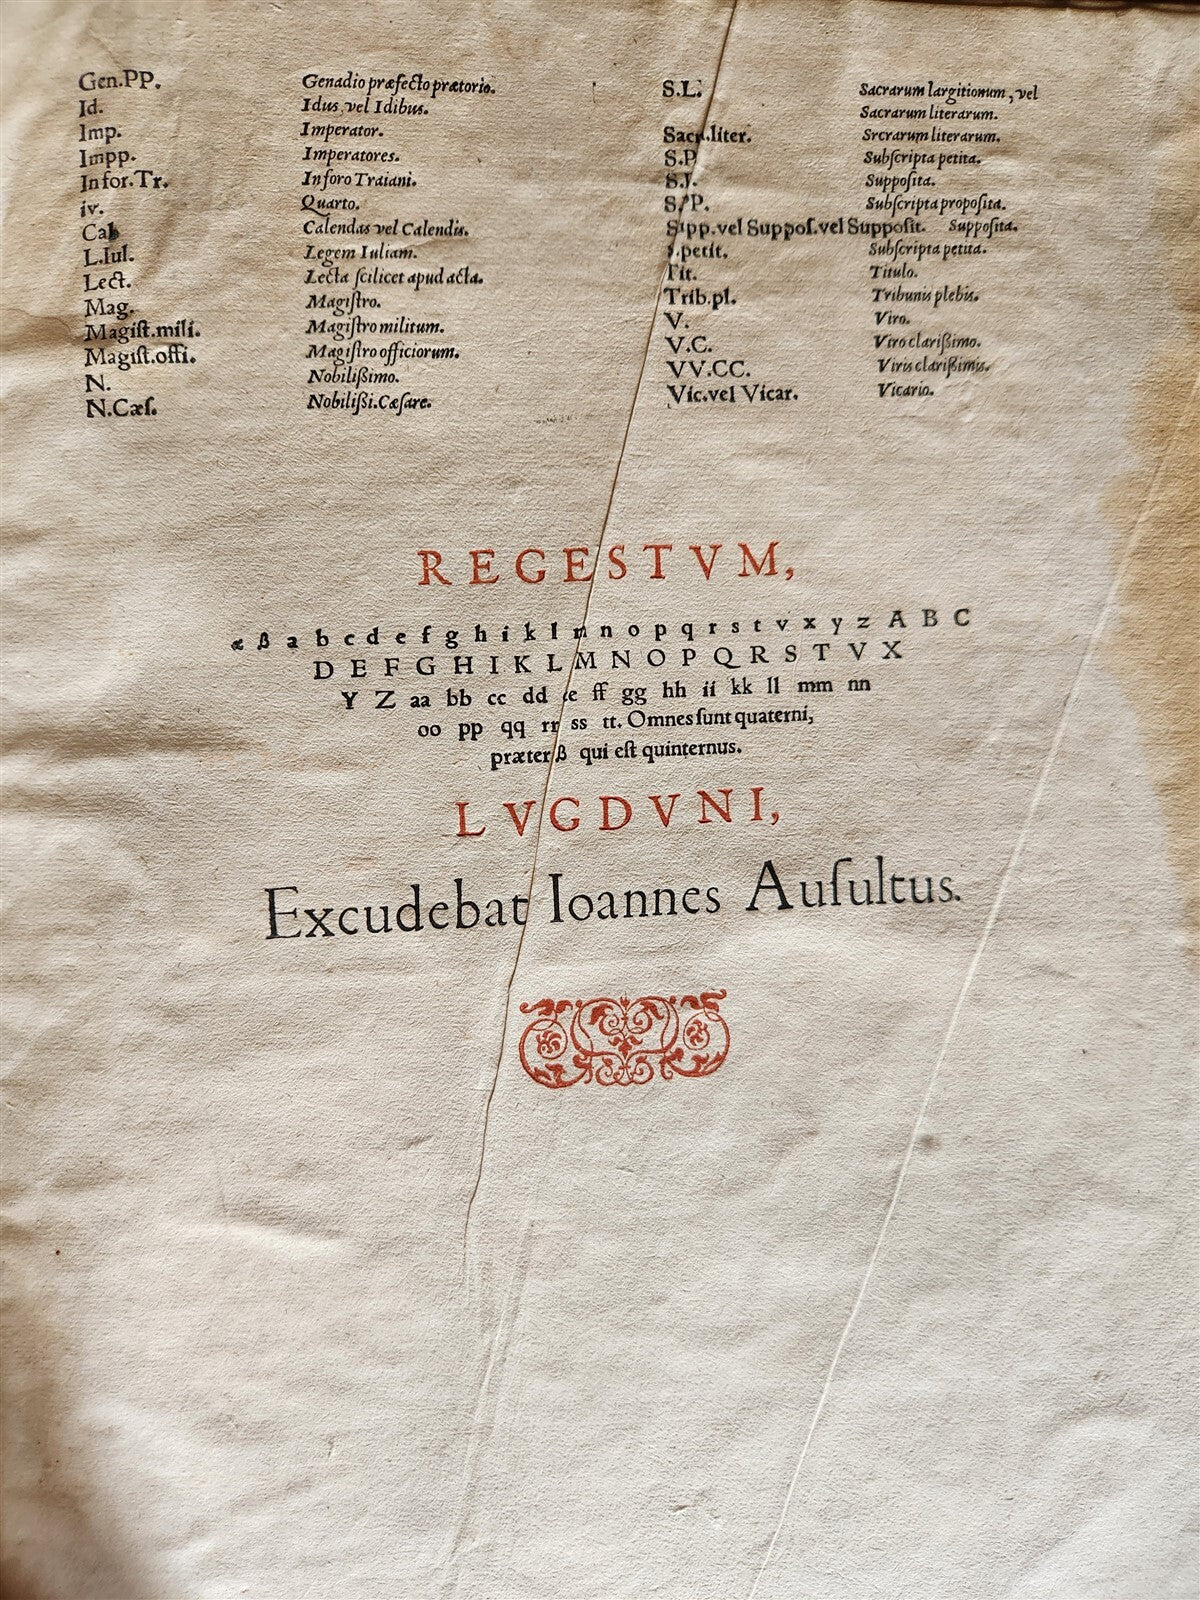 Gen.PP. Genadio præfecto prætorio.
Id. Idus, vel Idibus.
Imp. Imperator.
Impp. Imperatores.
In for.Tr. In foro Traiani.
iv. Quarto.
Cal Calendas vel Calendis.
L.Iul. Legem Iuliam.
Lect. Lecta ſcilicet apud acta.
Mag. Magiſtro.
Magiſt.mili. Magiſtro militum.
Magiſt.offi. Magiſtro officiorum.
N. Nobilißimo.
N.Cæſ. Nobilißi.Cæſare.
S.L. Sacrarum largitionum, vel
Sacrarum literarum.
Sacr.liter. Srcrarum literarum.
S.P Subſcripta petita.
Suppoſita.
S.P. Subſcripta propoſita.
Supp.vel Suppoſ.vel Suppoſit. Suppoſita.
S.petit. Subſcripta petita.
Tit. Titulo.
Trib.pl. Tribunis plebis.
V. Viro.
V.C. Viro clarißimo.
VV.CC. Viris clarißimis.
Vic.vel Vicar. Vicario.
REGESTVM,
æ ß a b c d e f g h i k l m n o p q r s t v x y z A B C
D E F G H I K L M N O P Q R S T V X
Y Z aa bb cc dd ee ff gg hh ii kk ll mm nn
oo pp qq rr ss tt. Omnes ſunt quaterni,
præter ß qui eſt quinternus.
LVGDVNI,
Excudebat Ioannes Auſultus.